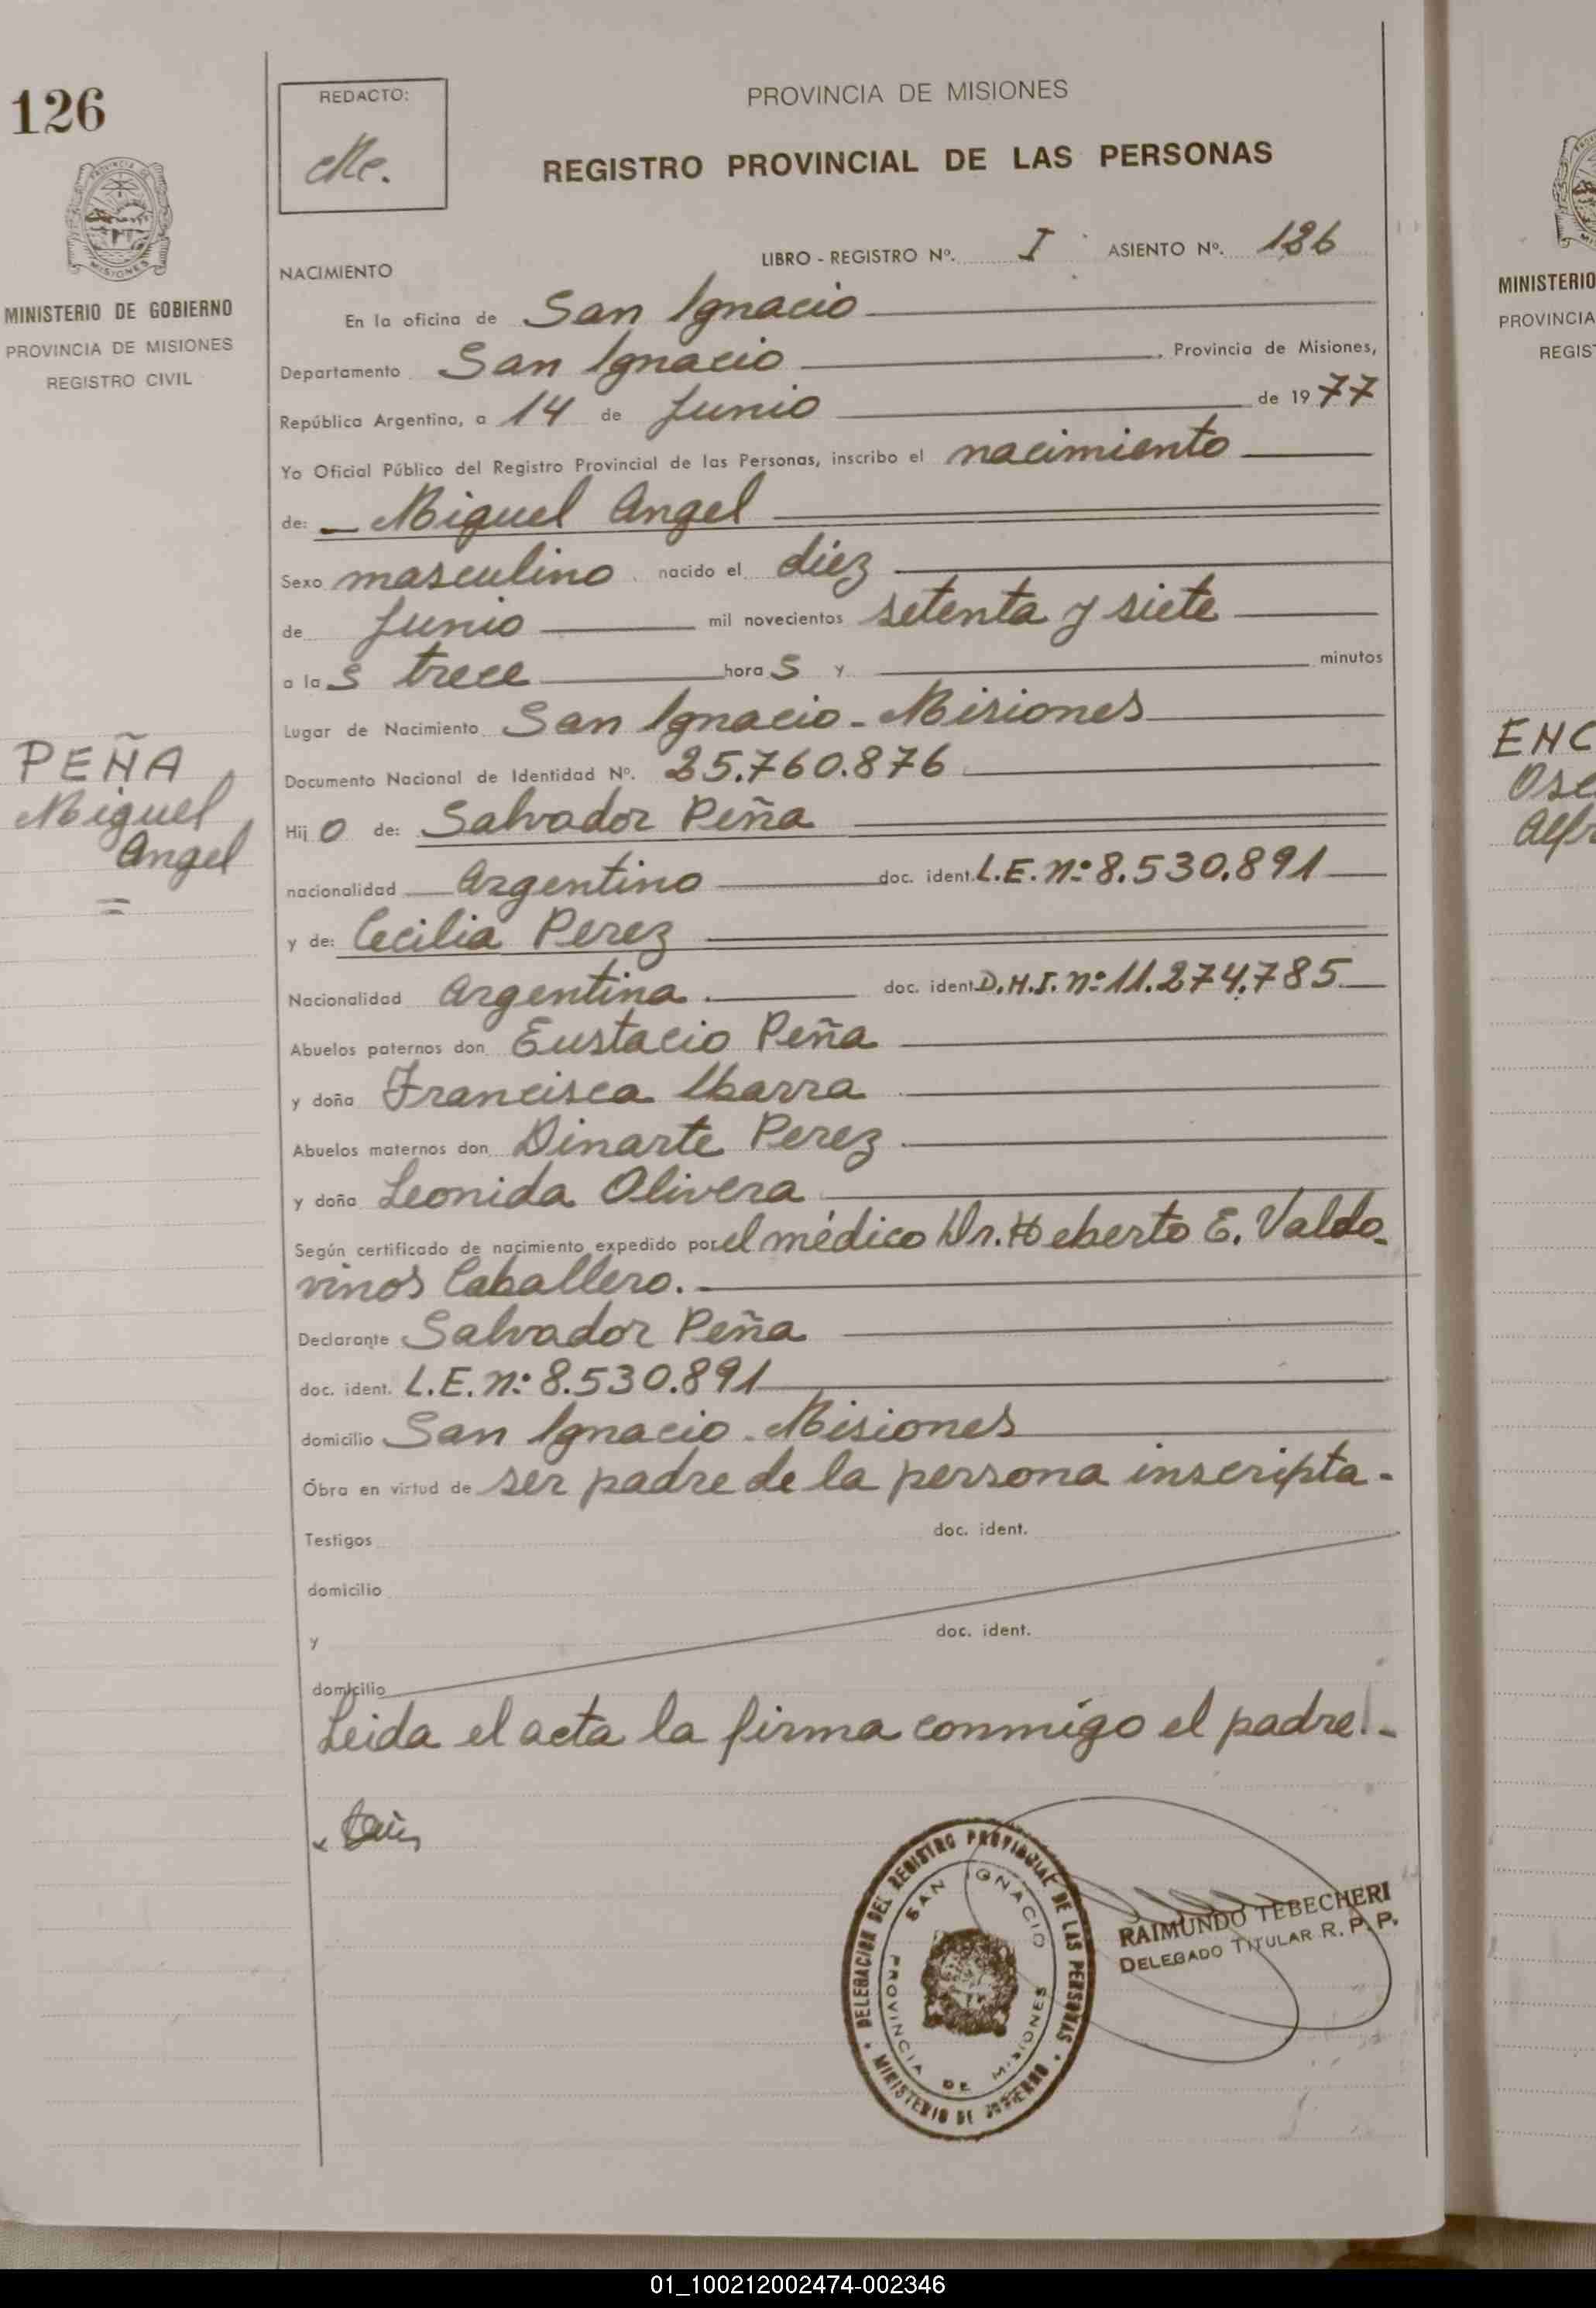 126
REDACTO:
PROVINCIA DE MISIONES
REGISTRO PROVINCIAL DE LAS PERSONAS
PROVINCIA DE
MISIONES
MINISTERIO DE GOBIERNO
PROVINCIA DE MISIONES
REGISTRO CIVIL
LIBRO - REGISTRO Nº. I ASIENTO Nº. 126
NACIMIENTO
En la oficina de San Ignacio
Departamento San Ignacio, Provincia de Misiones,
República Argentina, a 14 de Junio de 1977
Yo Oficial Público del Registro Provincial de las Personas, inscribo el nacimiento
de: Miguel Angel
Sexo masculino nacido el diez
de Junio mil novecientos setenta y siete
a las trece horas y minutos
Lugar de Nacimiento San Ignacio - Misiones
Documento Nacional de Identidad Nº. 25.760.876
PEÑA
Miguel
Angel
=
Hijo de: Salvador Peña
nacionalidad Argentino doc. ident. L.E. nº 8.530.891
y de: Cecilia Perez
Nacionalidad Argentina doc. ident. D.N.I. nº 11.274.785
Abuelos paternos don Eustacio Peña
y doña Francisca Ibarra
Abuelos maternos don Dinarte Perez
y doña Leonida Olivera
Según certificado de nacimiento expedido por el médico Dr. Heberto E. Valdo-
vinos Caballero.
Declarante Salvador Peña
doc. ident. L.E. nº 8.530.891
domicilio San Ignacio - Misiones
Obra en virtud de ser padre de la persona inscripta -
Testigos doc. ident.
domicilio
y doc. ident.
domicilio
Leida el acta la firma conmigo el padre.-
DELEGACION DEL REGISTRO PROVINCIAL DE LAS PERSONAS
MINISTERIO DE GOBIERNO
SAN IGNACIO
PROVINCIA DE MISIONES
RAIMUNDO TEBECHERI
DELEGADO TITULAR R. P. P.
MINISTERIO
PROVINCIA
REGIS
ENC
01_100212002474-002346